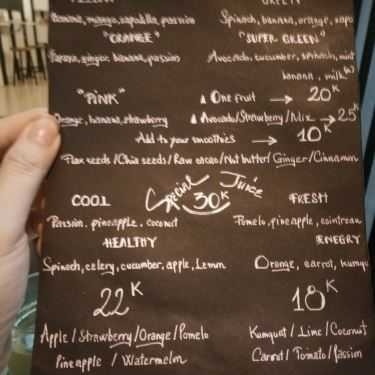 YELLOW GREEN
Banana, mango, sapodilla, passion Spinach, banana, orange, sapo
"ORANGE" "SUPER GREEN"
Papaya, ginger, banana, passion Avocado, cucumber, spinach, mint
banana, milk
"PINK" One fruit → 20K
Orange, banana, strawberry Avocado/Strawberry/Mix → 25K
Add to your smoothies → 10K
Flax seeds/Chia seeds/Raw cacao/Nut butter/Ginger/Cinnamon
Special Juice
COOL 30K FRESH
Passion, pineapple, coconut Pomelo, pineapple, cointreau
HEALTHY ENEGRY
Spinach, celery, cucumber, apple, Lemon Orange, carrot, kumqu
22K 18K
Apple/Strawberry/Orange/Pomelo Kumquat/Lime/Coconut
Pineapple / Watermelon Carrot/Tomato/Passion